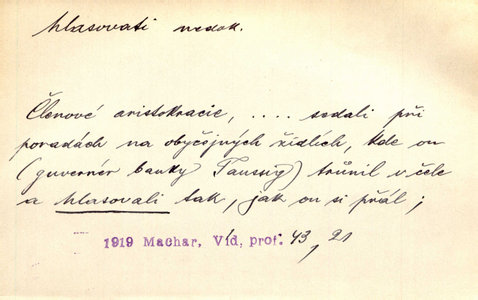 hlasovati nedok.
Členové aristokracie, .... sedali při
poradách na obyčejných židlích, kde on
(guvernér banky Taussig) trůnil v čele
a hlasovali tak, jak on si přál;
1919 Machar, Víd, prof. 43, 21